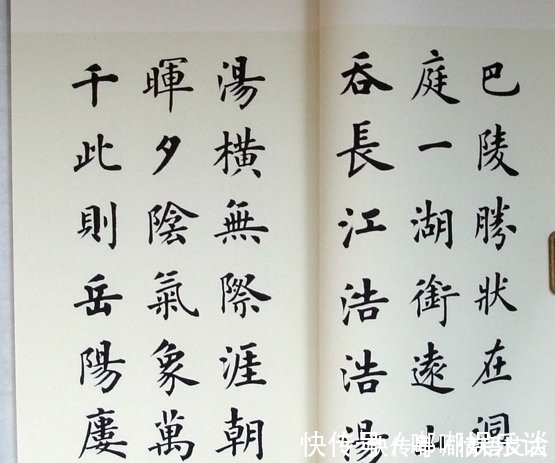 巴陵勝狀在洞
庭一湖銜遠山
吞長江浩浩湯
湯橫無際涯朝
暉夕陰氣象萬
千此則岳陽廔
快传